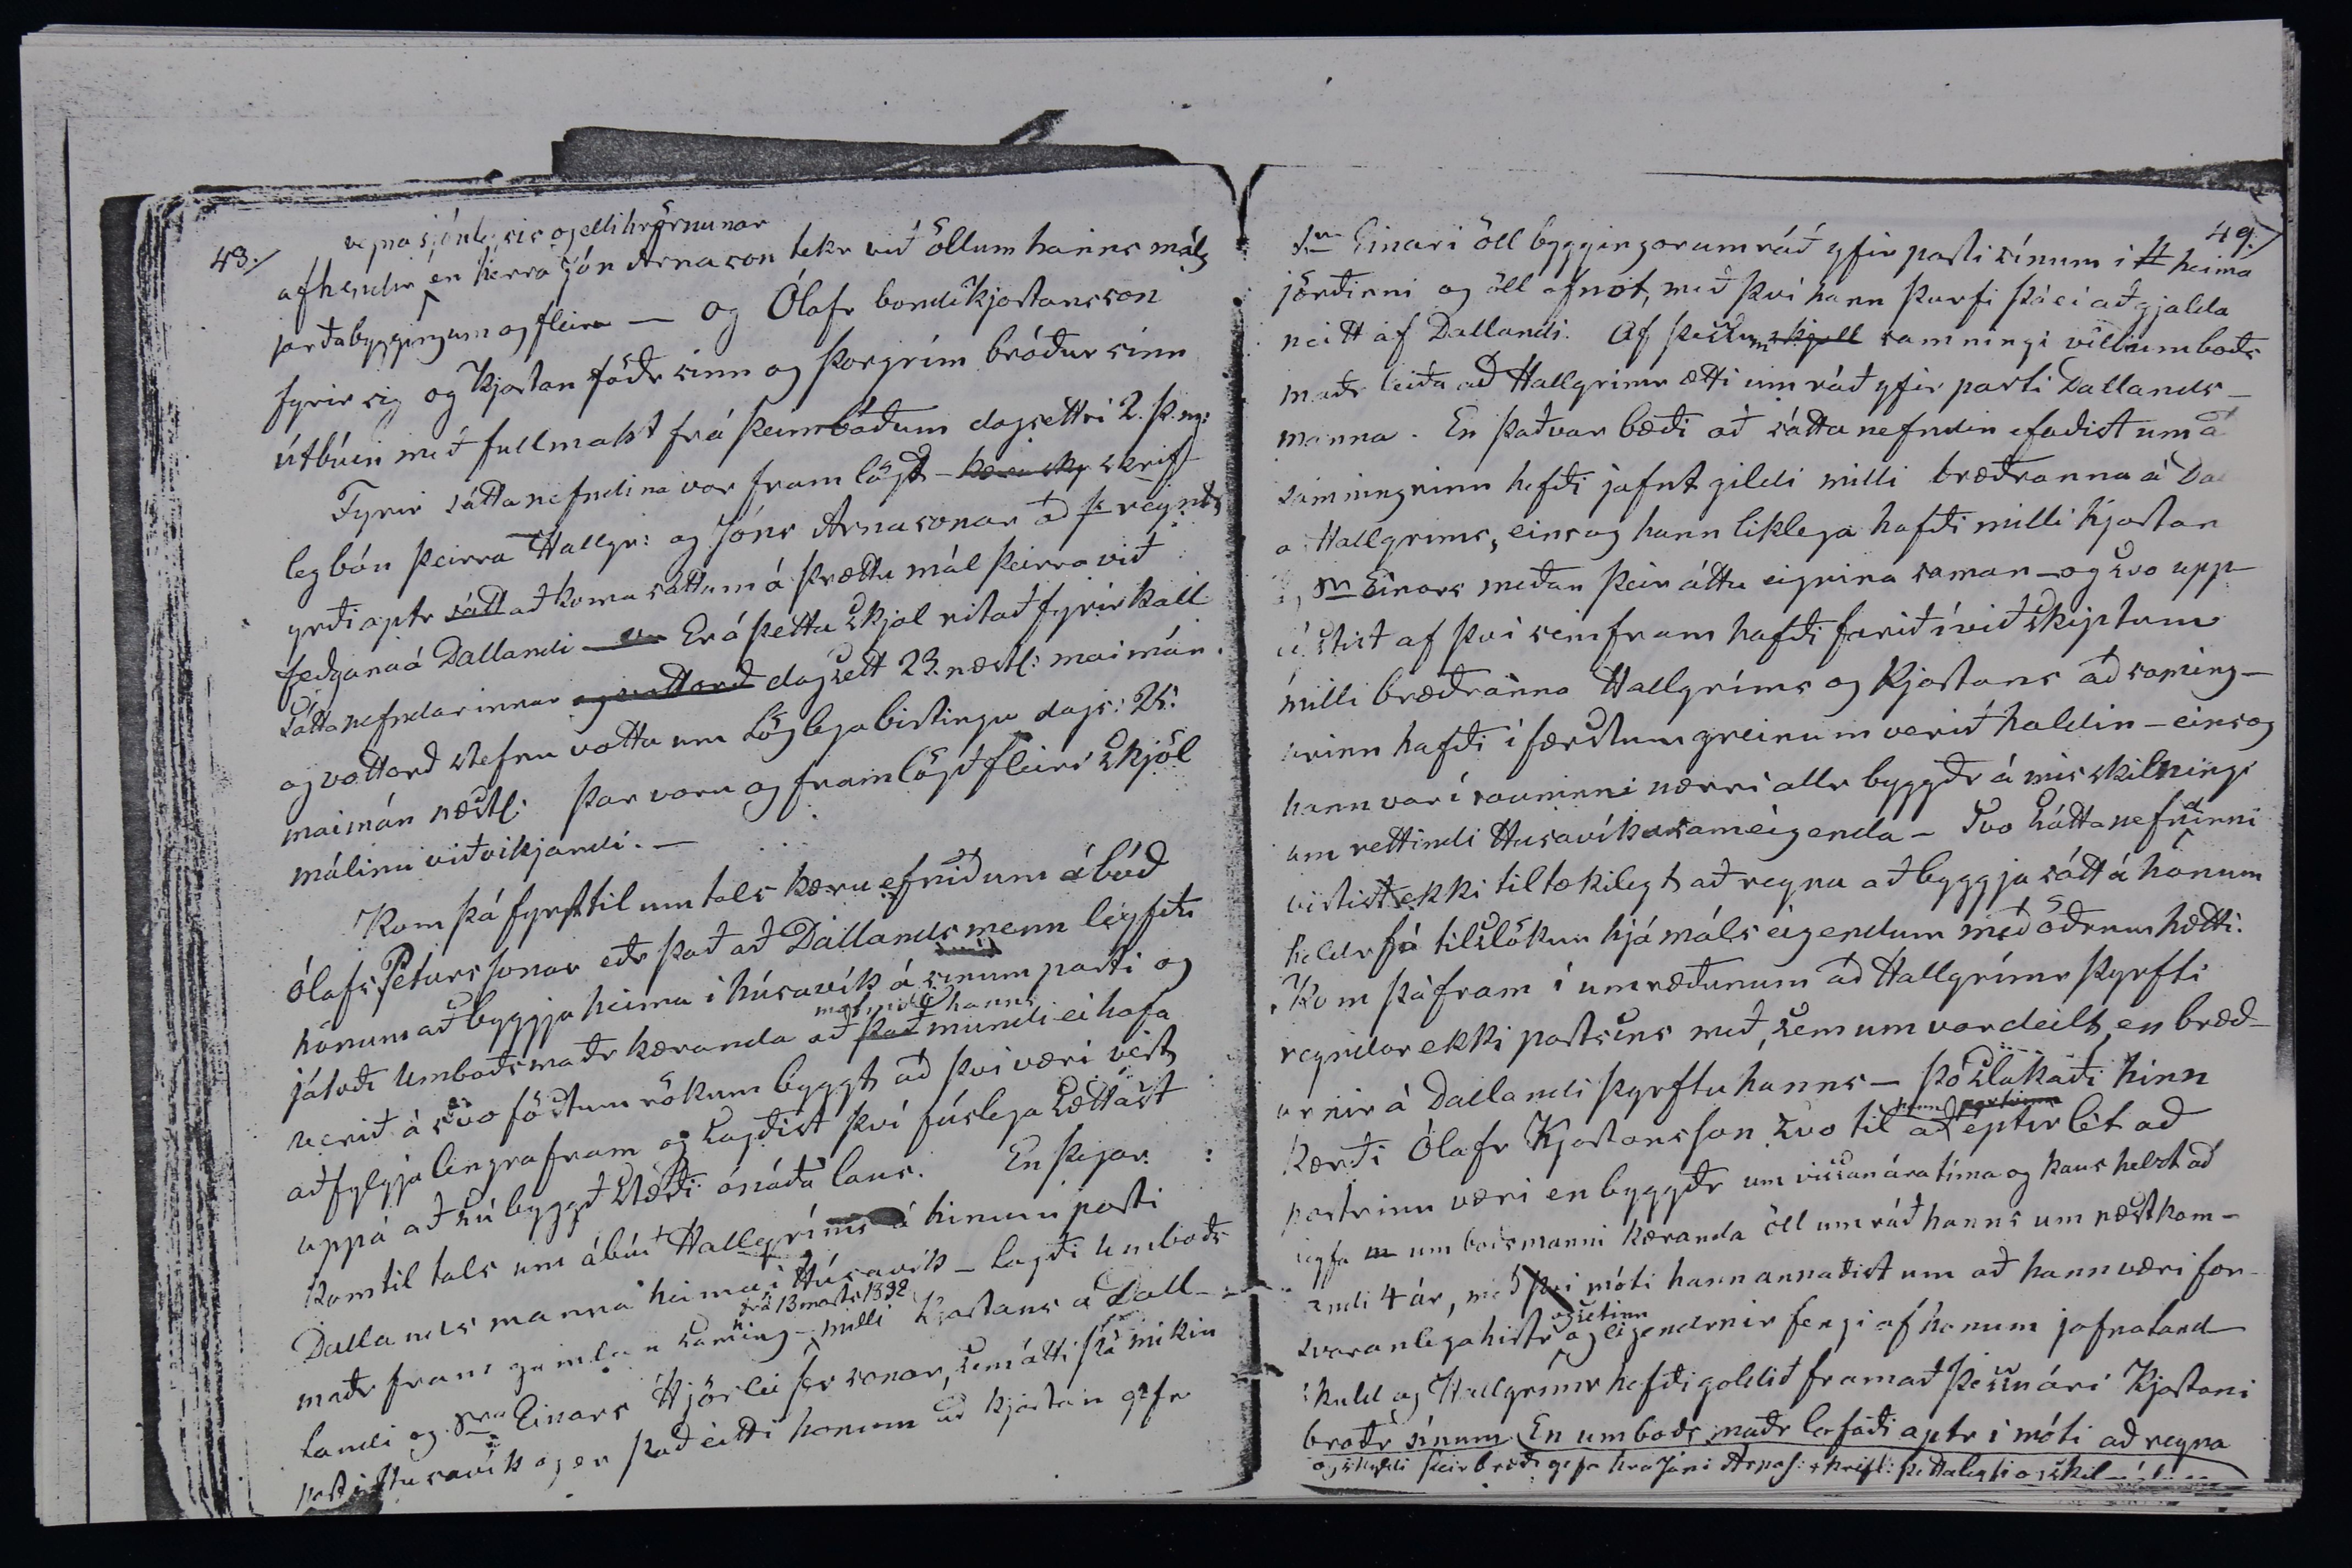 43./
vegna sjónleysis og ellihrörnunar
afhendir en herra Jón Arnason tekr við öllum hanns máls
jarðabyggingum og fleira — og Ólafr bondi Kjartansson
fyrir sig og Kjartan föðr sinn og Þorgrím bróður sinn
útbúin með fullmakt frá þeim báðum dagsettri 2. þ. m:
Fyrir sáttanefndina var fram lögð - kæru skr skrif-
leg bón þeirra Hallgr: og Jóns Arnasonar að þ reynt
yrði aptr sátt að koma sáttum á þrættu mál þeirra við
feðgana á Dallandi — Er á þetta Skjal ritað fyrirkall
Sáttanefndarinnar og vottorð dagsett 23. næstl: maimán.
og vottorð stefnu votta um Löglega birtingu dags: 25:
maimán næstl: Þar voru og framlögð fleiri Skjöl
málinu viðvikjandi. —
Kom þá fyrst til umtals kæru efnið um ábúð
Ólafs Péturssonar eðr það að Dallandsmenn leyfðu
hönum að byggja heima i húsavík á sinum parti og
játaði Umboðsmaðr kæranda að það mundi ei hafa
hanns
verið á svo föstum rökum byggt að þvi væri vert
að fylgja lengra fram og sagðist því fúslega Sættast
uppá að sú byggð Stæði ónáðu laus. En þegar
kom til tals um ábúð Hallgríms á hinum parti
Dallands manna heima i Húsavík - lagði Umboðs
maðr fram gamlan Saming - milli Kjartans á Dall-
frá 13 marts 1832
landi og Sra Einars Hjörleifssonar, sem átti þá mikin
part i Husavík og er það eitti honum að Kjartan gefr
49./
Sra Einari öll byggingarumráð yfir parti sínum i H heima
jörðinni og öll afnot, með þvi hann þurfi þá ei að gjalda
neitt af Dallandi. Af þessum skjall samningi vill umboðs
maðr leiða að Hallgrímr ætti umráð yfir parti Dallands-
manna. En það var bæði að sáttanefndin efaðist um a
samningrinn hefði jafnt gildi milli bræðranna á Da
o Hallgríms, eins og hann liklega hafði milli Kjartan
Sra Einars meðan þeir áttu eignina saman - og Svo upp-
lístist af þvi sem fram hafði farið í viðskiptum
milli bræðranna Hallgríms og Kjartans að saming-
urinn hafði i fæstum greinum verið haldin - eins og
hann var í rauninni nærri allr byggðr á misskilningi
um rettindi Husavíkur sameigenda - Svo Sáttanefndinni
virtist ekki tiltækilegt að reyna að byggja sátt á hönum
heldr fá tilslökun hjá máls eigendum með öðrum hætti.
Kom þá fram í umræðunum að Hallgrímr þyrfti
reyndar ekki parts ins með, Sem um var deilt, en bræð-
urnir á Dallandi þyrftu hanns - Þó Slakaði hinn
kærði Ólafr Kjartansson Svo til að eptirlét að
hann partinn
partrinn væri en byggðr um vissan ára tíma og þaus helst að
leyfa m umboðsmanni kæranda öll umráð hanns um næstkom-
andi 4 ár, með þvi móti hann annaðist um að hann væri for-
svaranlega hirtr og eigendrnir fengi af honum jafna land
og setinn
skuld og Hallgrímr hefði goldið framað þessu ári Kjartani
broðr sínum. En umboðs maðr lofaði aptr i móti að reyna
og skyldi þeir bræðr gefa hra Jóni Arnas: skrifl: